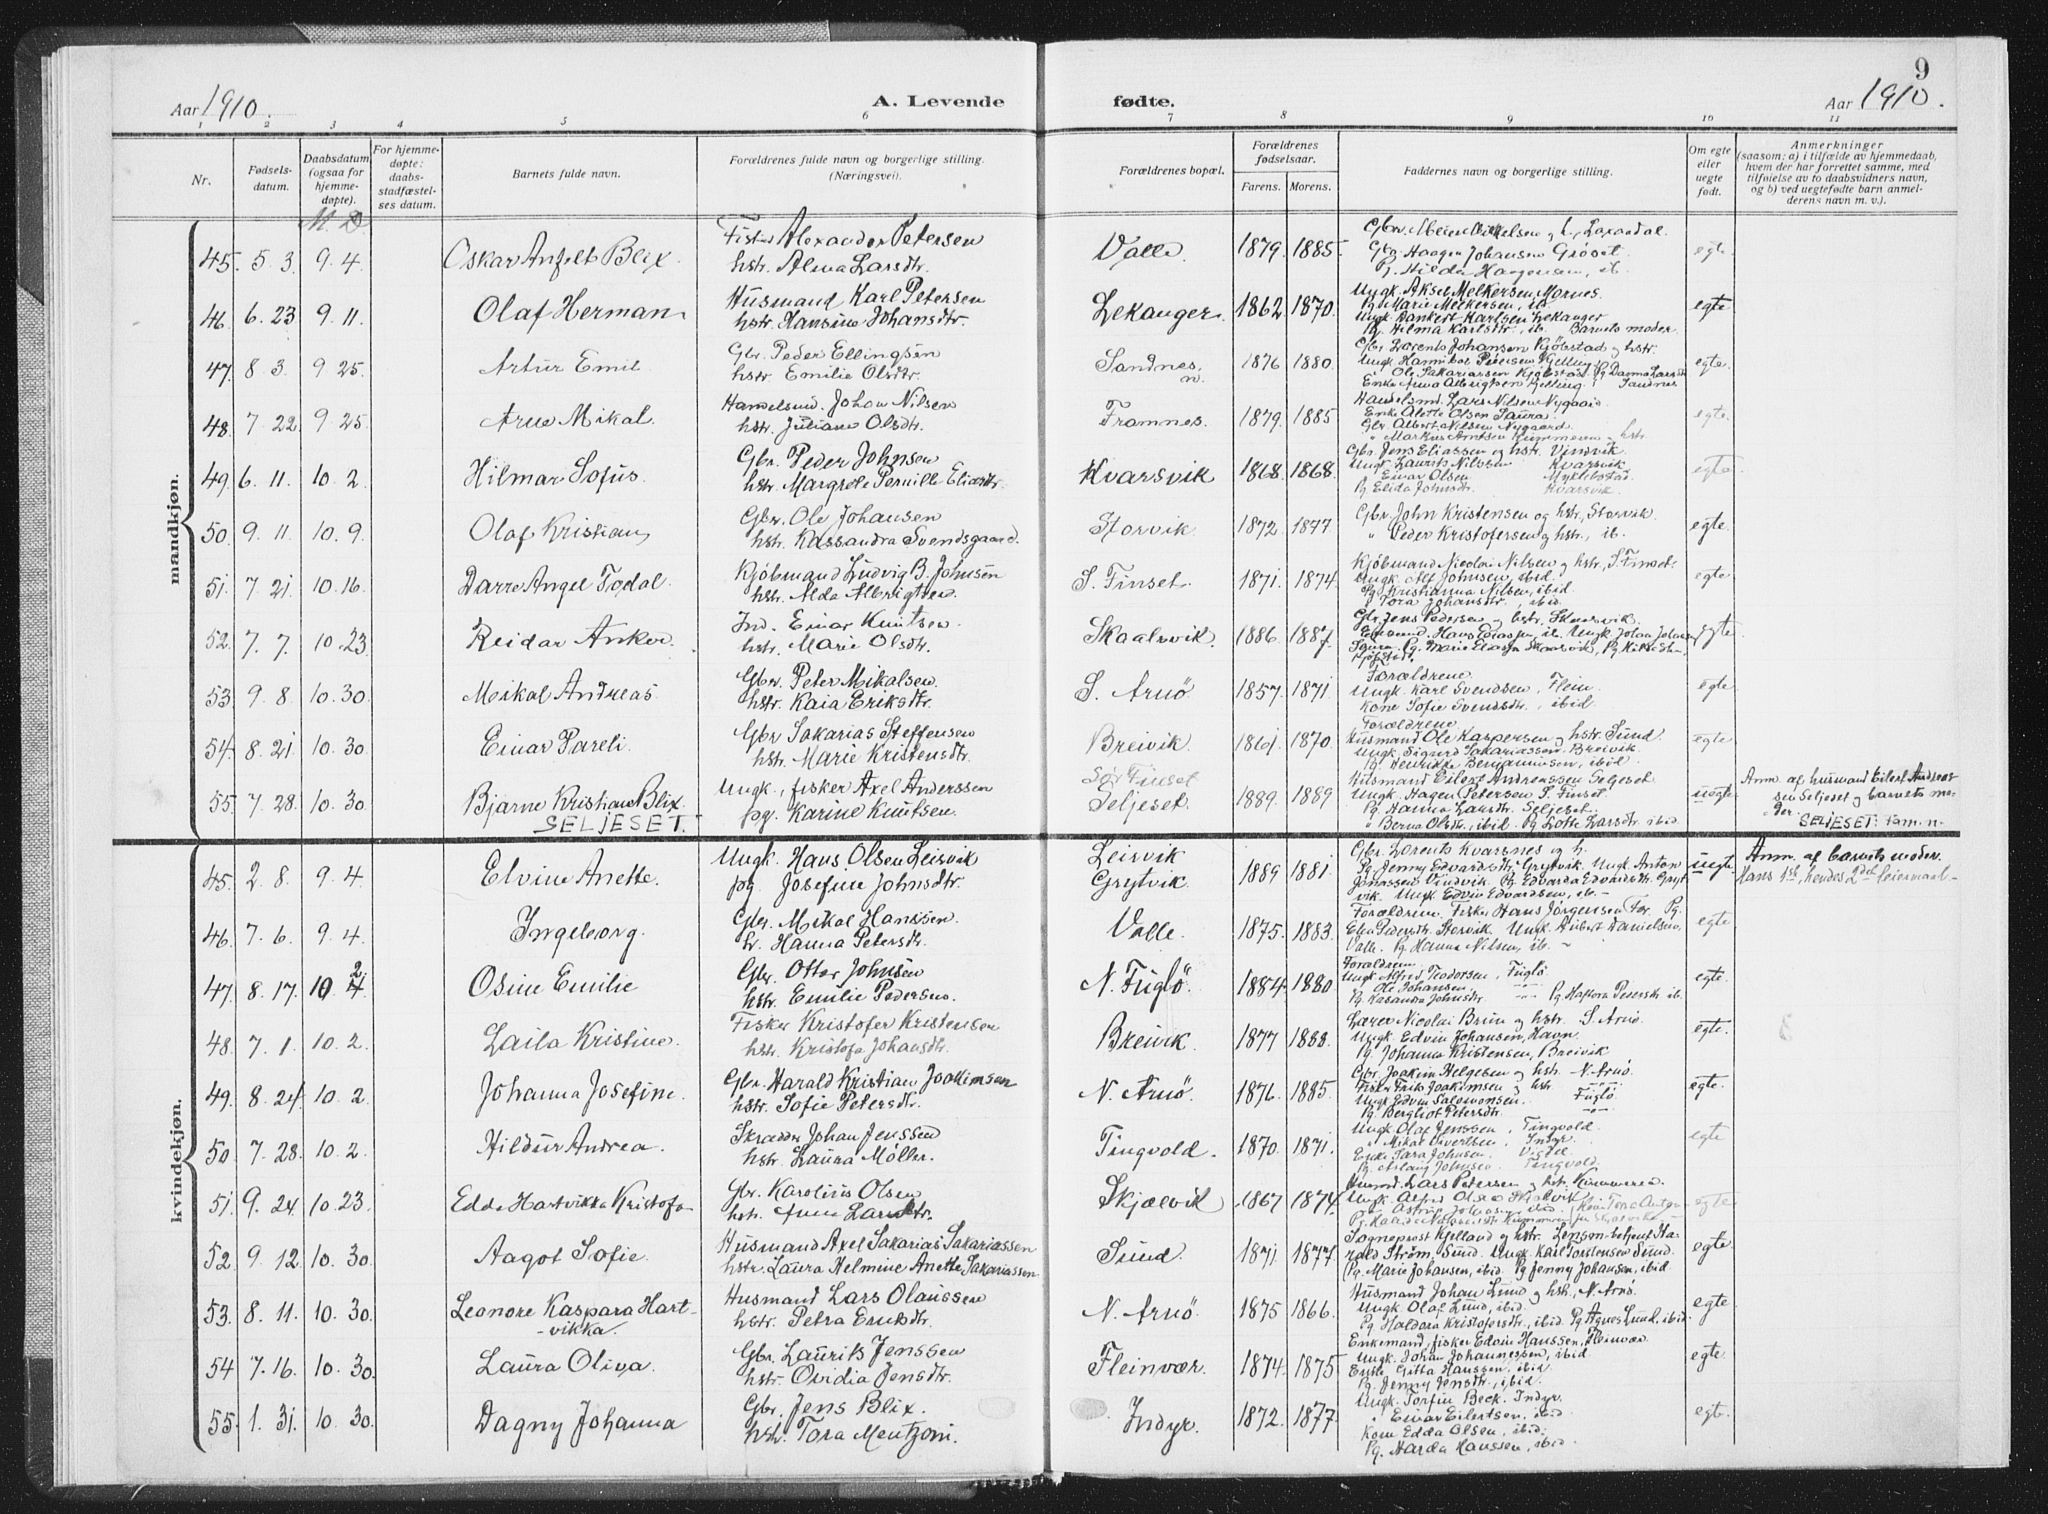 Aar 1910.
A. Levende
fødte.
9
Aar 1910.
1 2 3 4 5 6 7 8 9 10 11
Nr.
Fødselsdatum.
Daabsdatum (ogsaa for hjemmedøpte).
For hjemmedøpte: daabsstadfæstelses datum.
Barnets fulde navn.
Forældrenes fulde navn og borgerlige stilling. (Næringsvei).
Forældrenes bopæl.
Forældrenes fødselsaar.
Farens. Morens.
Faddernes navn og borgerlige stilling.
Om egte eller uegte født.
Anmerkninger
(saasom: a) i tilfælde av hjemmedaab, hvem der har forrettet samme, med tilføielse av to daabsvidners navn, og b) ved uegtefødte barn anmelderens navn m. v.).
M. D
mandkjøn.
45. 5. 3. 9. 4. Oskar Anfelt Blix. Fisker Alexander Petersen
hstr. Alma Larsdtr. Valle 1879. 1885. Gbr. Haagen Johansen Grøset egte
Pg. Hilda Haagensen, ib.
46. 6. 23 9. 11. Olaf Herman. Husmand Karl Petersen
hstr. Hansine Johansdtr. Lekanger. 1862. 1870. Ungk. Aksel Melkersen, Mornes. egte
Pg. Marie Melkersen, ib.
Ungk. Dankert Karlsen Lekanger
Pg. Hilma Karlsdtr., ib. Barnets moder.
47. 8. 3. 9 25. Artur Emil Gbr. Peder Ellingsen
hstr. Emilie Olsdtr. Sandnes 1876 1880. Gbr. Lorents Johansen Kjøbstad og hstr. egte.
48. 7. 22 9. 25. Arne Mikal. Handelsmd. Johan Nilsen
hstr. Juliane Olsdtr. Framnes. 1879. 1885 Handelsmd. Lars Nilsen Nygaard. egte.
Enke Alette Olsen Saura.
Gbr. Albert Nilsen Nygaard
49. 6. 11. 10. 2. Hilmar Sofus. Gbr. Peder Johnsen
hstr. Margrete Pernille Eliasdtr. Kvarsvik 1868. 1868. Gbr. Jens Eliassen og hstr. Vindvik. egte
Ungk. Laurits Nilssen Kvarsvik.
" Einar Olsen Myklebostad
Pg. Elida Johnsdtr. Kvarsvik.
50. 9. 11. 10. 9. Olaf Kristian Gbr. Ole Johansen
hstr. Kassandra Svendsgaard. Storvik 1872 1877 Gbr. John Kristensen og hstr., Storvik. egte
" Peder Kristofersen og hstr., ib.
51. 7. 21. 10. 16. Darre Angel Todal. Kjøbmand Ludvig B. Johnsen
hstr. Alda Albrigtsen. S. Finset. 1871. 1874 Kjøbmand Nicolai Nilsen og hstr., S. Finset. egte
Ungk. Alf Johnsen, ibid.
Pg. Kristianna Nilsen, ibid
" Tora Johansdtr., ibid.
52. 7. 7. 10. 23. Reidar Anker. Ind. Einar Knutsen
hstr. Marie Olsdtr. Skaalsvik. 1886. 1887. Gbr. Jens Pedersen og hstr. egte
53 9. 8. 10. 30. Mikal Andreas. Gbr. Peter Mikalsen
hstr. Kaia Eriksdtr. S. Arnø 1857. 1871 Forældrene. egte
Ungk. Karl Svendsen, Flein.
Kone Sofie Svendsdtr., ibid
54. 8. 21 10. 30. Einar Pareli. Gbr Sakarias Steffensen
hstr. Marie Kristensdtr. Breivik. 1861. 1870. Forældrene egte
Husmand Ole Kaspersen og hstr. Sund.
Ungk. Sigurd Sakariassen Breivik.
Pg. Henrikke Benjaminsen, ibid.
55. 7. 28. 10. 30. Bjarne Kristian Blix.
SELJESET. Ungk., fisker Axel Anderssen
pg. Karine Knutsen. Sør Finset
Seljeset. 1889. 1889 Husmand Eilert Andreassen Seljeset uegte
Ungk. Hagen Petersen S. Finset.
Pg. Hanna Larsdtr. Seljeset.
" Berna Olsdtr., ibid. Pg Lotte Larsdtr. ibid.
Anm. af husmand Eilert Andreassen Seljeset og barnets moder. SELJESET: fam.n.
kvindekjøn.
45. 2. 8. 9. 4. Elvine Anette. Ungk. Hans Olsen Leisvik
pg. Josefine Johnsdtr. Leisvik
Grytvik. 1889 1881. Gbr. Lorents Kvarsnes og h. uegt.
Pg. Jenny Edvardsdtr. Grytvik. Ungk Anton
Jonassen Vindvik. Pg. Edvarda Edvardsdtr. Grytvik. Ungk Edvin Edvardsen, ib. -
Anm. af barnets moder.
Hans 1ste, hendes 2det leiermaal -
46. 7. 6. 9. 4. Ingeborg. Gbr. Mikal Hanssen.
h. Hanna Petersdtr. Valle. 1875. 1883. Forældrene. Fisker Hans Jørgensen For. Pg. egte.
Storvik. Ungk. Hibert Danielsen,
Valle. Pg. Hanna Nilsen, ib. -
47. 8. 17. 10 2 Osine Emilie Gbr. Otter Johnsen
hstr. Emilie Pedersen. N. Fuglø. 1884. 1880 Forældrene. egte
Ungk Alfred Teodorsen, Fuglø
" Ole Johansen,
Pg. Kasandra Johnsdtr. Pg. Haftora Petersdtr ib.
48. 7. 1. 10. 2. Laila Kristine. Fisker Kristofer Kristensen
hstr. Kristofa Johansdtr. Breivik. 1877 1888. Lærer Nicolai Brun og hstr. S. Arnø. egte.
Ungk Edvin Johansen, Havn.
Pg. Johanna Kristensen, Breivik
49. 8. 24. 10. 2. Johanna Josefine. Gbr. Harald Kristian Joakimsen
hstr. Sofie Petersdtr. N. Arnø. 1876. 1885. Gbr. Joakim Helgesen og hstr. N. Arnø. egte.
Fisker Erik Joakimsen og hstr Fuglø.
Ungk Edvin Salomonsen.
Pg. Bergliot Petersdtr.
50 7. 28. 10. 2. Hildur Andrea. Skrædder Johan Jenssen
hstr. Laura Møller. Tingvold. 1870. 1871. Ungk Olaf Jenssen, Tingvold. egte
" Mikal Sivertsen. Indyr.
Enke Sara Johnsen.
Pg. Aslaug Johnsen. Tingvold.
51 9. 24. 10. 23. Edda Hartvikka Kristofa Gbr. Karolius Olsen
hstr. Anna Larsdtr. Skjælvik 1867 1874. Lars Petersen og hstr. egte
52. 9. 12. 10. 30. Aagot Sofie. Husmand Axel Sakarias Sakariassen
hstr. Laura Helmine Anette Sakariassen Sund. 1871. 1877. Sogneprest Kjelland og hstr. Lensm. betjent Harald Strøm, Sund. Ungk. Karl Torstensen Sund. egte
Pg. Marie Johansen, ibid. Pg Jenny Johansen, ibid
53. 8. 11. 10. 30. Leonore Kaspara Hartvikka. Husmand Lars Olaussen
hstr. Petra Eriksdtr. N. Arnø. 1875 1866. Husmand Johan Lund og hstr., N. Arnø. egte
Ungk Olaf Lund, ibid.
Pg Haldora Kristofersdtr., ibid. Pg Agnes Lund, ibid.
54 7. 16. 10. 30. Laura Oliva. Gbr. Laurits Jenssen
hstr. Ovidia Jensdtr. Fleinvær. 1874. 1875 Enkemand, fisker Edvin Hanssen, Fleinvær egte.
Ungk. Johan Johannessen, ibid
Enke Gitta Hanssen, ibid.
Pg. Jenny Jensdtr., ibid.
55. 1. 31. 10. 30. Dagny Johanna Gbr. Jens Blix.
hstr. Tora Mentzoni. Indyr. 1872. 1877. Ungk. Torfin Beck, Indyr. egte
" Einar Eilertsen, ibid.
Kone Edda Olsen, ibid.
Pg. Harda Hanssen, ibid.